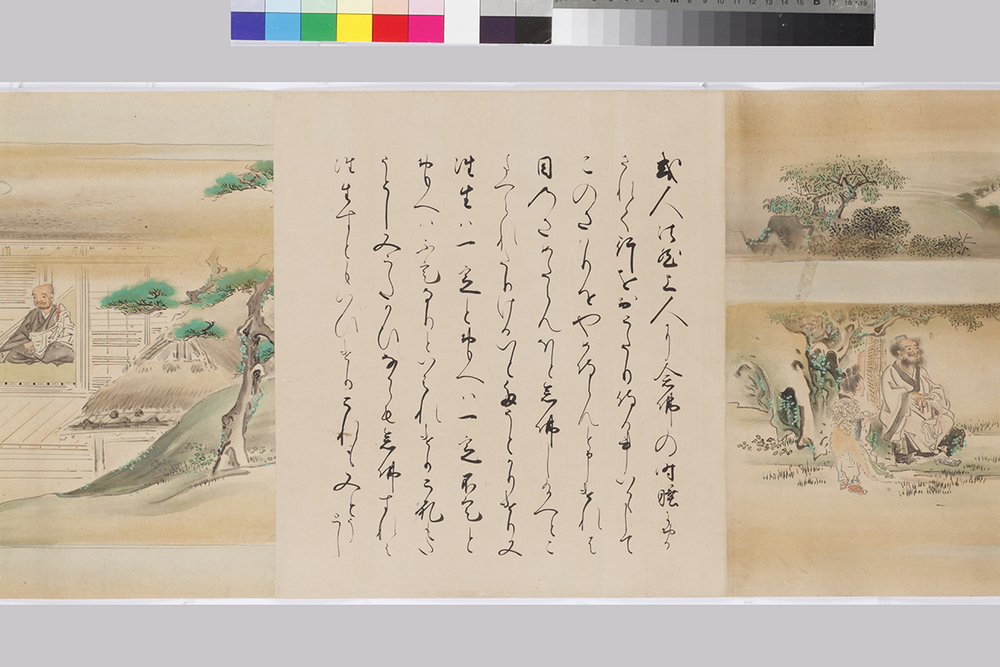 或人法然上人に念佛の時睡にをか
されて行をおこたり侍る事いかゝして
このさはりをやめ侍らんと申けれは
目のさめたらんほと念佛し給へとこ
たへられたりけるいとたうとかりけり又
往生は一定とおもへは一定不定と
おもへは不定なりといはれけりこれもた
うとし又うたかひなからも念佛すれは
往生すともいはれけりこれも又とうとし